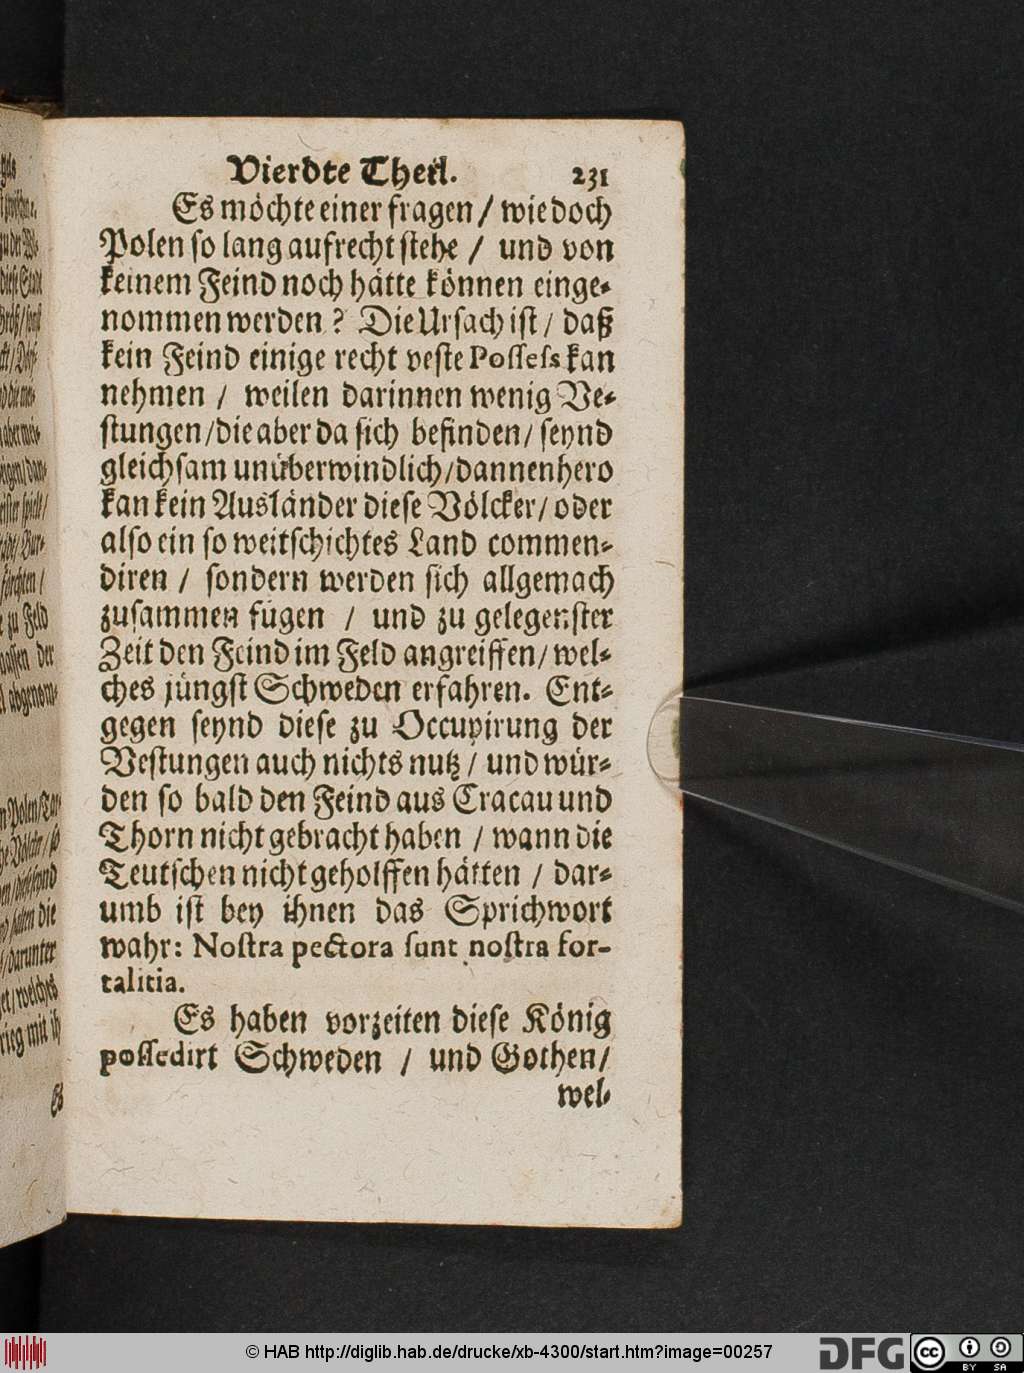 Vierdte Theil. 231
Es möchte einer fragen / wie doch
Polen so lang aufrecht stehe / und von
keinem Feind noch hätte können einge-
nommen werden ? Die Ursach ist / daß
kein Feind einige recht veste Possess kan
nehmen / weilen darinnen wenig Ve-
stungen / die aber da sich befinden / seynd
gleichsam unüberwindlich / dannenhero
kan kein Ausländer diese Völcker / oder
also ein so weitschichtes Land commen-
diren / sondern werden sich allgemach
zusammen fügen / und zu gelegenster
Zeit den Feind im Feld angreiffen / wel-
ches jüngst Schweden erfahren. Ent-
gegen seynd diese zu Occupirung der
Vestungen auch nichts nutz / und wür-
den so bald den Feind aus Cracau und
Thorn nicht gebracht haben / wann die
Teutschen nicht geholffen hätten / dar-
umb ist bey ihnen das Sprichwort
wahr: Nostra pectora sunt nostra for-
talitia.
Es haben vorzeiten diese König
possedirt Schweden / und Gothen /
wel-
© HAB http://diglib.hab.de/drucke/xb-4300/start.htm?image=00257
DFG
cc
BY SA